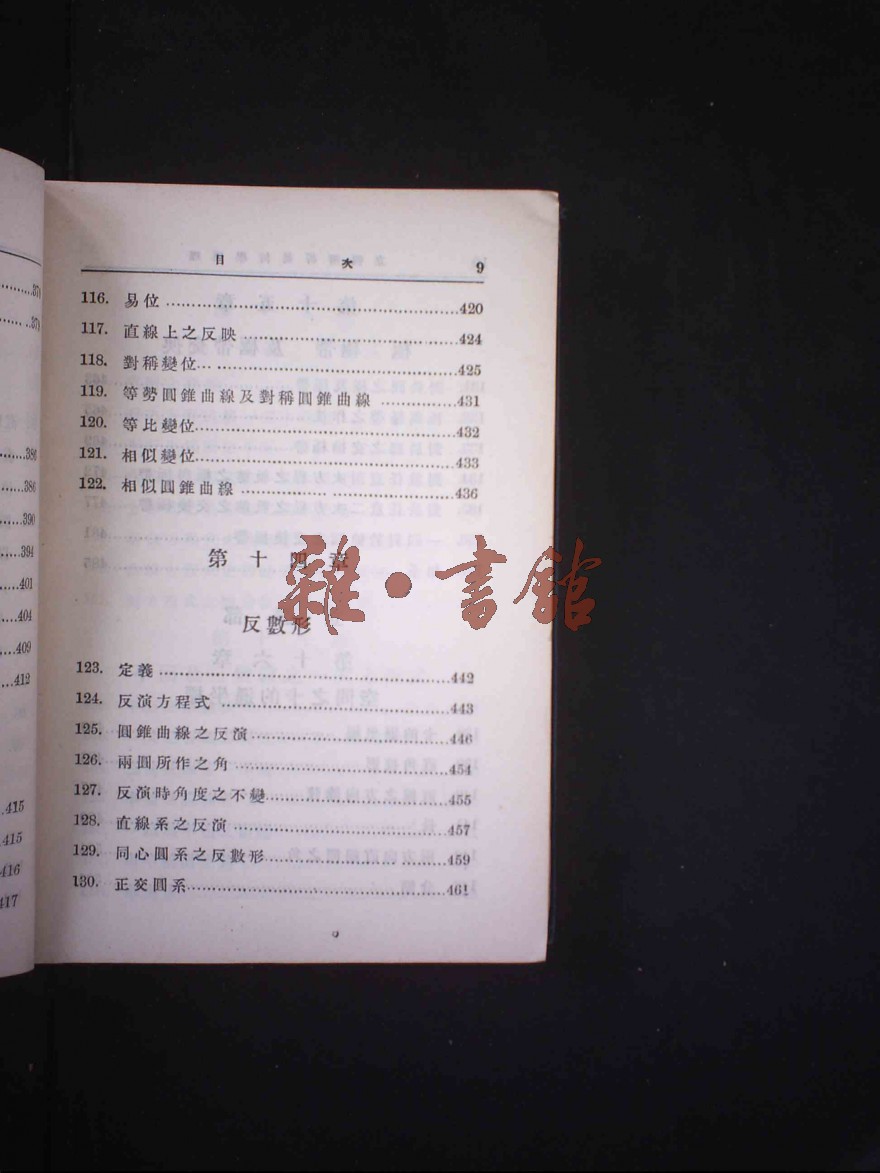 目 次 9
116. 易位 420
117. 直線上之反映 424
118. 對稱變位 425
119. 等勢圓錐曲線及對稱圓錐曲線 431
120. 等比變位 432
121. 相似變位 433
122. 相似圓錐曲線 436
第十四章
反數形
123. 定義 442
124. 反演方程式 443
125. 圓錐曲線之反演 446
126. 兩圓所作之角 454
127. 反演時角度之不變 455
128. 直線系之反演 457
129. 同心圓系之反數形 459
130. 正交圓系 461
雜·書館
379
386
386
390
394
401
404
409
412
415
415
416
417